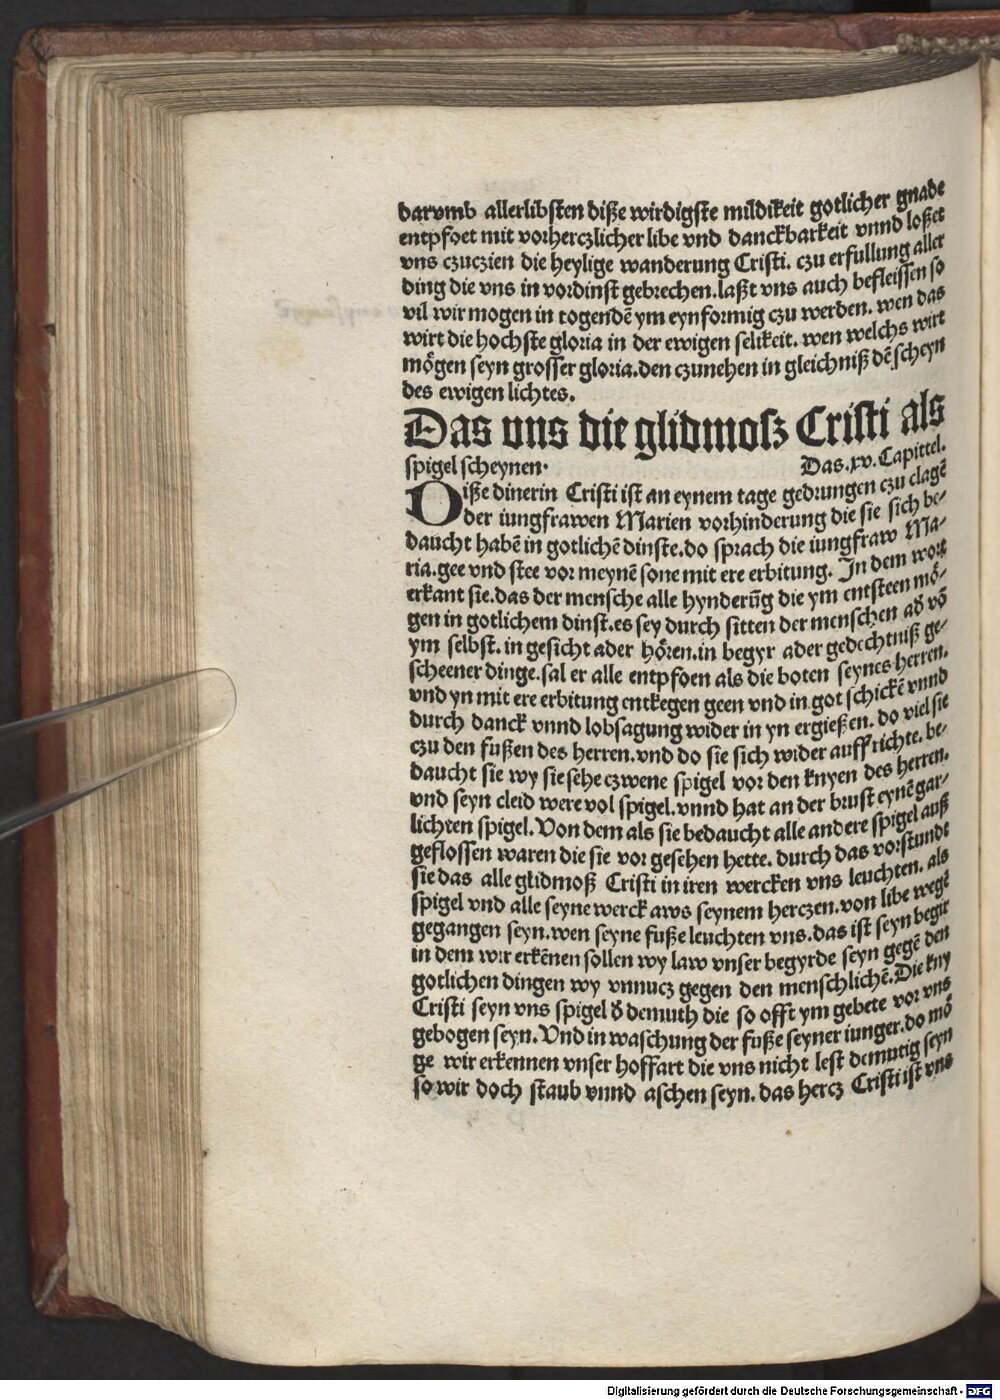 darvmb allerlibsten diße wirdigste mildikeit gotlicher gnade
entpfoet mit vorherczlicher libe vnd danckbarkeit vnnd loßet
vns czuczien die heylige wanderung Cristi. czu erfullung aller
ding die vns in vordinst gebrechen. laßt vns auch befleissen so
vil wir mogen in togendē ym eynformig czu werden. wen das
wirt die hochste gloria in der ewigen selikeit. wen welchs wirt
mögen seyn grosser gloria. den czunehen in gleichniß dē scheyn
des ewigen lichtes.
Das vns die glidmosz Cristi als
spigel scheynen. Das .xv. Capittel.
Diße dinerin Cristi ist an eynem tage gedrungen czu clagē
der iungfrawen Marien vorhinderung die sie sich be-
daucht habē in gotlichē dinste. do sprach die iungfraw Ma-
ria. gee vnd stee vor meynē sone mit ere erbitung. In dem wort
erkant sie. das der mensche alle hynderūg die ym entsteen mö-
gen in gotlichem dinst. es sey durch sitten der menschen ad vō
ym selbst. in gesicht ader hören. in begyr ader gedechtniß ge-
scheener dinge. sal er alle entpfoen als die boten seynes herren.
vnd yn mit ere erbitung entkegen geen vnd in got schickē vnnd
durch danck vnnd lobsagung wider in yn ergießen. do viel sie
czu den fußen des herren. vnd do sie sich wider auffrichte. be-
daucht sie wy sie sehe czwene spigel vor den knyen des herren.
vnd seyn cleid were vol spigel. vnnd hat an der brust eynē gar-
lichten spigel. Von dem als sie bedaucht alle andere spigel auß
geflossen waren die sie vor gesehen hette. durch das vorstundt
sie das alle glidmoß Cristi in iren wercken vns leuchten. als
spigel vnd alle seyne werck aws seynem herczen. von libe wegē
gegangen seyn. wen seyne fuße leuchten vns. das ist seyn begir
in dem wir erkēnen sollen wy law vnser begyrde seyn gegē den
gotlichen dingen wy vnnucz gegen den menschlichē. Die kny
Cristi seyn vns spigel d̄ demuth die so offt ym gebete vor vns
gebogen seyn. Vnd in waschung der fuße seyner iunger. do mö
ge wir erkennen vnser hoffart die vns nicht lest demutig seyn
so wir doch staub vnnd aschen seyn. das hercz Cristi ist vns
Digitalisierung gefördert durch die Deutsche Forschungsgemeinschaft - DFG